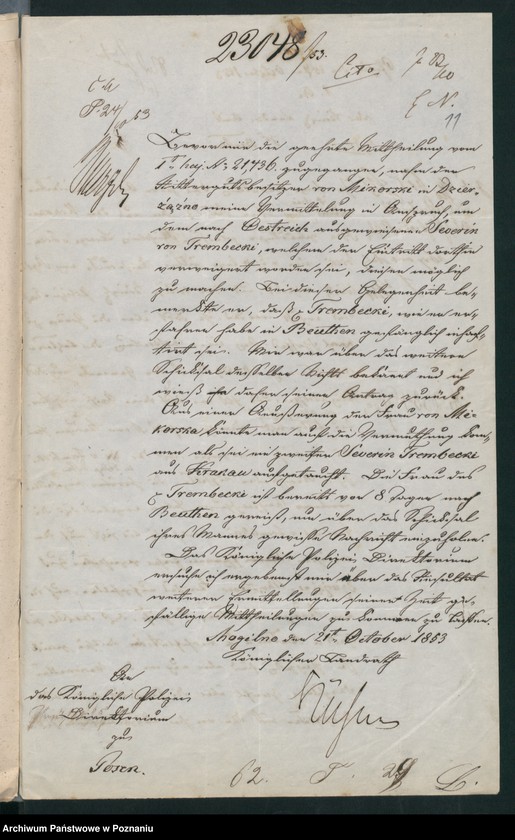 23048/53.
Cito
P. 24/10 53
Bevor mir die geehrte Mittheilung vom
1t. huj. No 21,436. zugegangen, nahm der
Rittergutsbesitzer von Mikorski in Dzier-
zążno meine Vermittelung in Anspruch, um
dem nach Oestreich ausgewiesenen Severin
von Trembecki, welchem der Eintritt dorthin
verweigert worden sei, diesen möglich
zu machen. Bei dieser Gelegenheit be-
merkte er, daß p Trembecki, wie er er-
fahren habe in Beuthen gefänglich inhaf-
tirt sei. Mir war über das weitere
Schicksal desselben Nichts bekannt und ich
wies ihn daher seinen Antrag zurück.
Aus einer Aeußerung der Frau von Mi-
korska könnte man auf die Vermuthung kom-
men als sei ein zweiter Severin Trembecki
aus Krakau aufgetaucht. Die Frau des
p Trembecki ist bereits vor 8 Tagen nach
Beuthen gereist, um über das Schicksal
ihres Mannes gewisse Nachricht einzuholen.
Das Königliche Polizei Direktorium
ersuche ich ergebenst mir über das Resultat
weiterer Ermittellungen seiner Zeit ge-
fällige Mittheilungen zukommen zu lassen.
Mogilno den 21t. October 1853
Königlicher Landrath
An
das Königliche Polizei
Direktorium
zu
Posen.
62. T. 29 L.
Archiwum Państwowe w Poznaniu